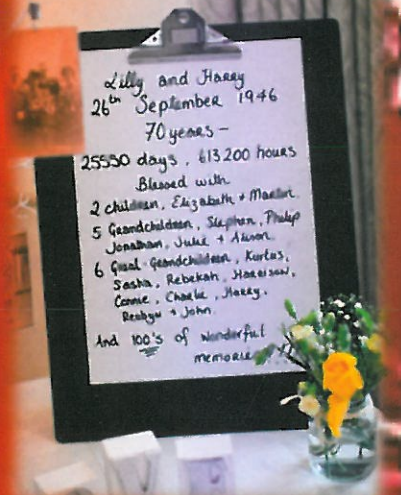 Lilly and Harry
26th September 1946
70 years -
25550 days, 613200 hours
Blessed with
2 children, Elizabeth + Martin.
5 Grandchildren, Stephen, Philip
Jonathan, Julie + Alison.
6 Great-Grandchildren, Kurtus,
Sasha, Rebekah, Harrison,
Connie, Charlie, Harry,
+ John.
And 100's of wonderful
memories